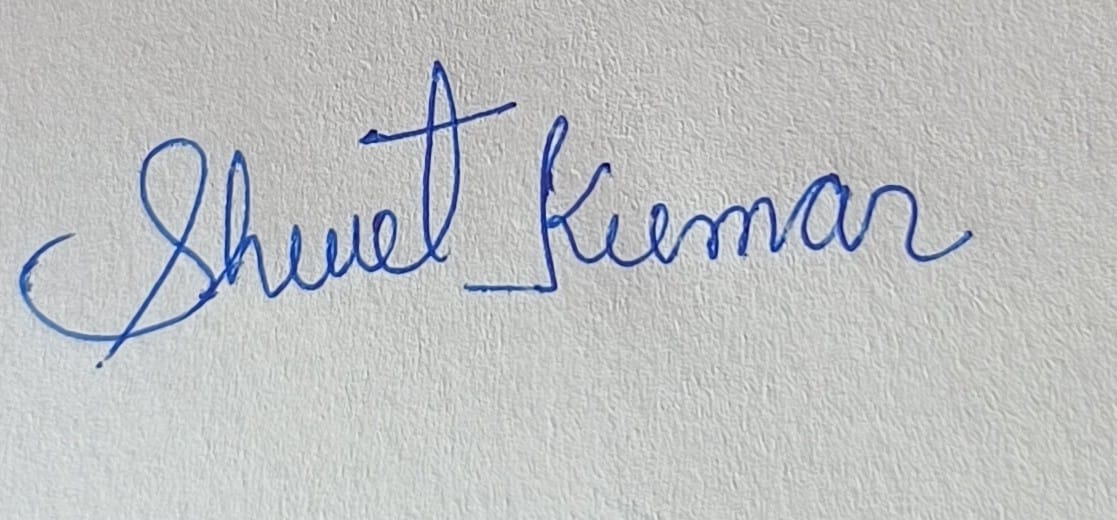 Shwet Kumar